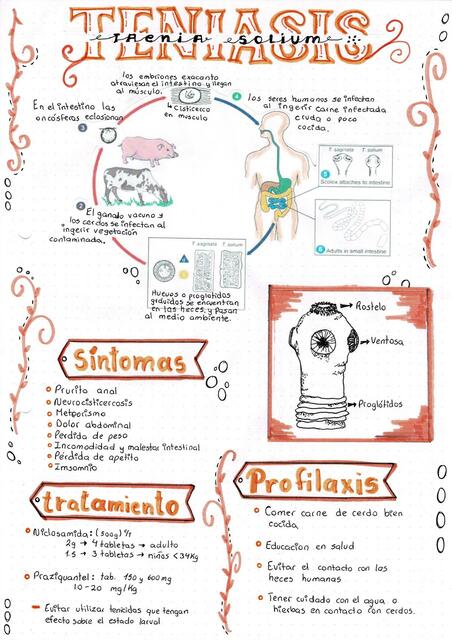 TENIASIS
TAENIA SOLIUM
los embriones exacanto
atraviesan el intestino y llegan
al músculo.
4 Cisticerco
en musculo
4
los seres humanos se infectan
al ingerir carne infectada
cruda o poco
cocida.
En el intestino las
oncósferas eclosionan
3
T. saginata T. solium
5
Scolex attaches to intestine
2
El ganado vacuno y
los cerdos se infectan al
ingerir vegetación
contaminada.
6
Adults in small intestine
T. saginata T. solium
Huevos o proglótidos
grávidos se encuentran
en las heces, y pasan
al medio ambiente.
Rostelo
Ventosa
Proglótidos
Síntomas
Prurito anal
Neurocisticercosis
Meteorismo
Dolor abdominal
Perdida de peso
Incomodidad y malestar intestinal
Pérdida de apetito
Insomnio
tratamiento
Niclosamida: (500g)
2g → 4 tabletas → adulto
1.5 → 3 tabletas → niños <34Kg
Praziquantel: tab. 150 y 600mg
10-20 mg/Kg
Evitar utilizar tenicidas que tengan
efecto sobre el estado larval
Profilaxis
Comer carne de cerdo bien
cocida.
Educacion en salud
Evitar el contacto con las
heces humanas
Tener cuidado con el agua o
hierbas en contacto con cerdos.